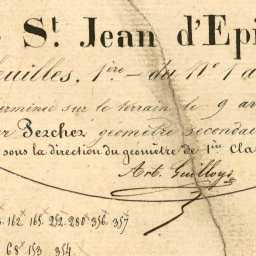 St. Jean d'Epi
feuilles, 1ère du No 1 a
terminée sur le terrain le 9 av
Pezchez géomètre secondai
sous la direction du géomètre de 1re Cla
162 165 252 280 356 357
68 153 354